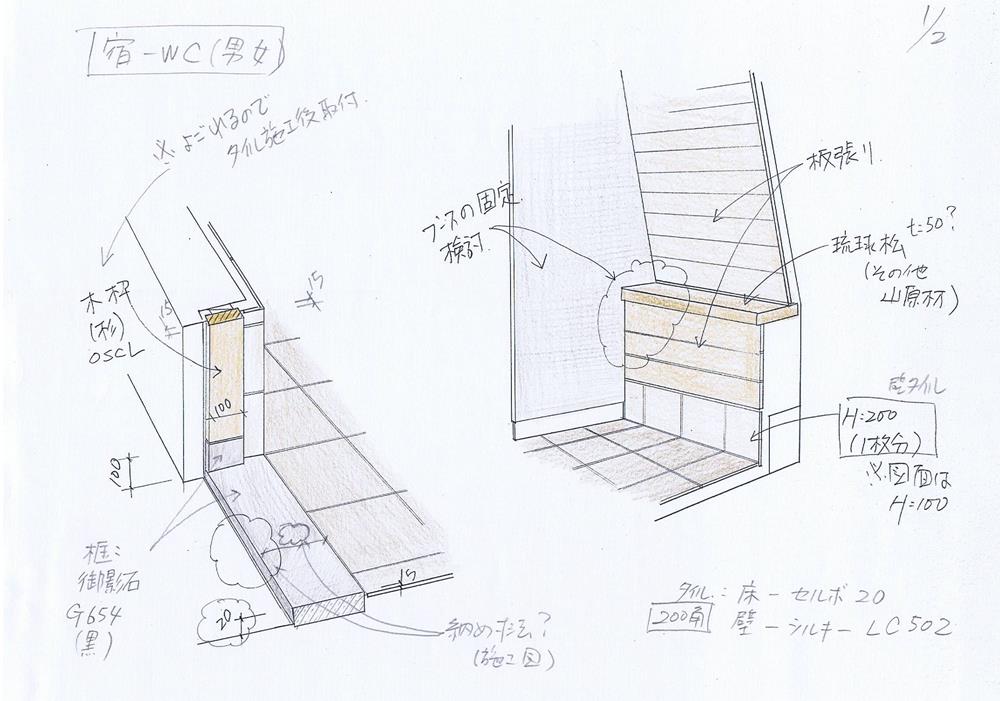 1/2
宿-WC(男女)
※よごれるので
タイル施工後取付.
木枠
(杉)
OSCL
15
15
100
100
框:
御影石
G654
(黒)
20
15
納め方法?
(施工図)
ブースの固定
検討.
板張り.
琉球松 t=50?
(その他
山原材)
壁タイル
H=200
(1枚分)
※図面は
H=100
タイル: 床-セルボ20
200角 壁-シルキーLC502